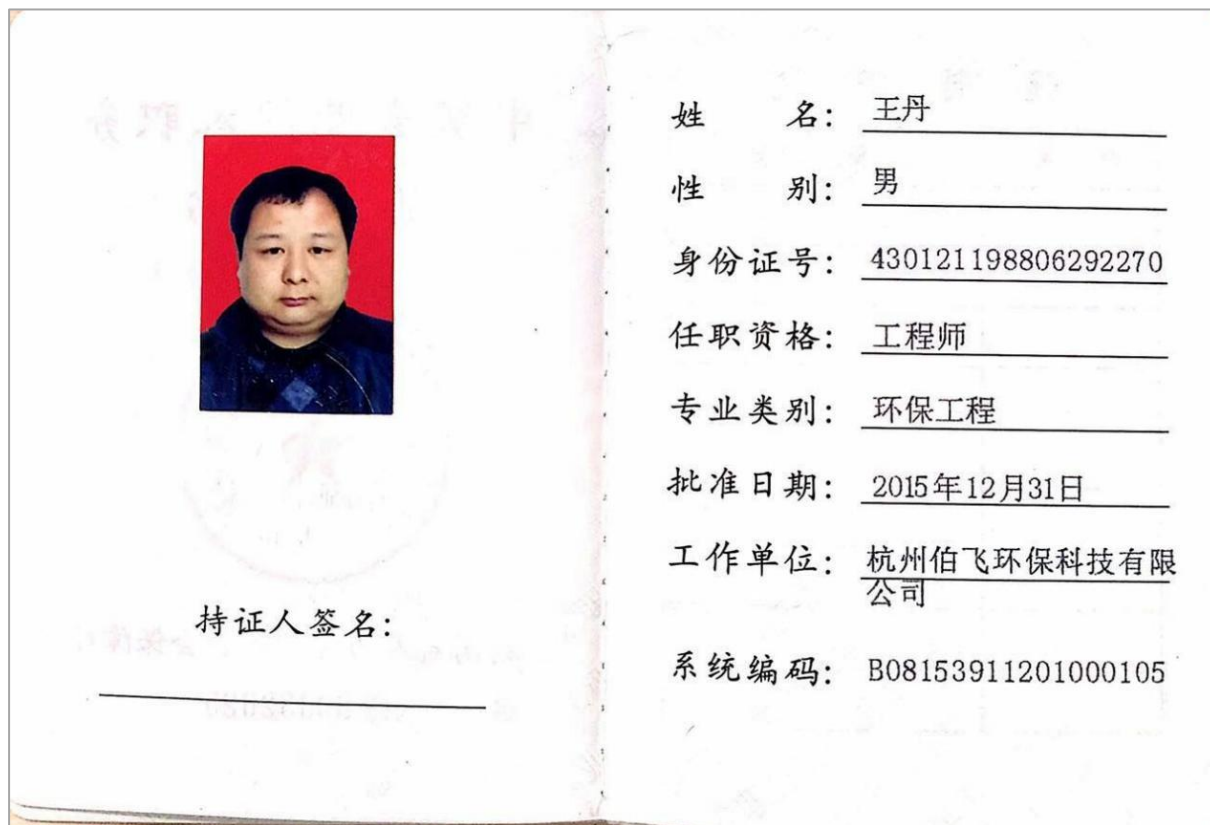 持证人签名：
姓 名： 王丹
性 别： 男
身份证号： 430121198806292270
任职资格： 工程师
专业类别： 环保工程
批准日期： 2015年12月31日
工作单位： 杭州伯飞环保科技有限
公司
系统编码： B08153911201000105